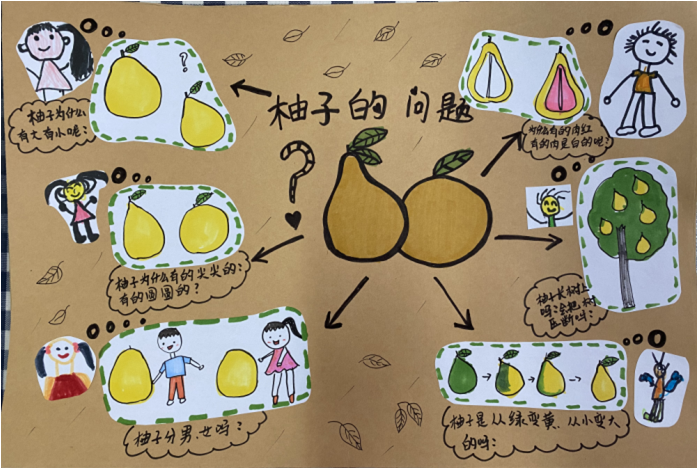 柚子的问题
?
柚子为什么
有大有小呢?
?
为什么有的肉红
有的肉是白的呢?
柚子为什么有的尖尖的?
有的圆圆的?
柚子长树上
吗?会把树
压断吗?
柚子分男、女吗?
柚子是从绿变黄、从小变大
的吗?